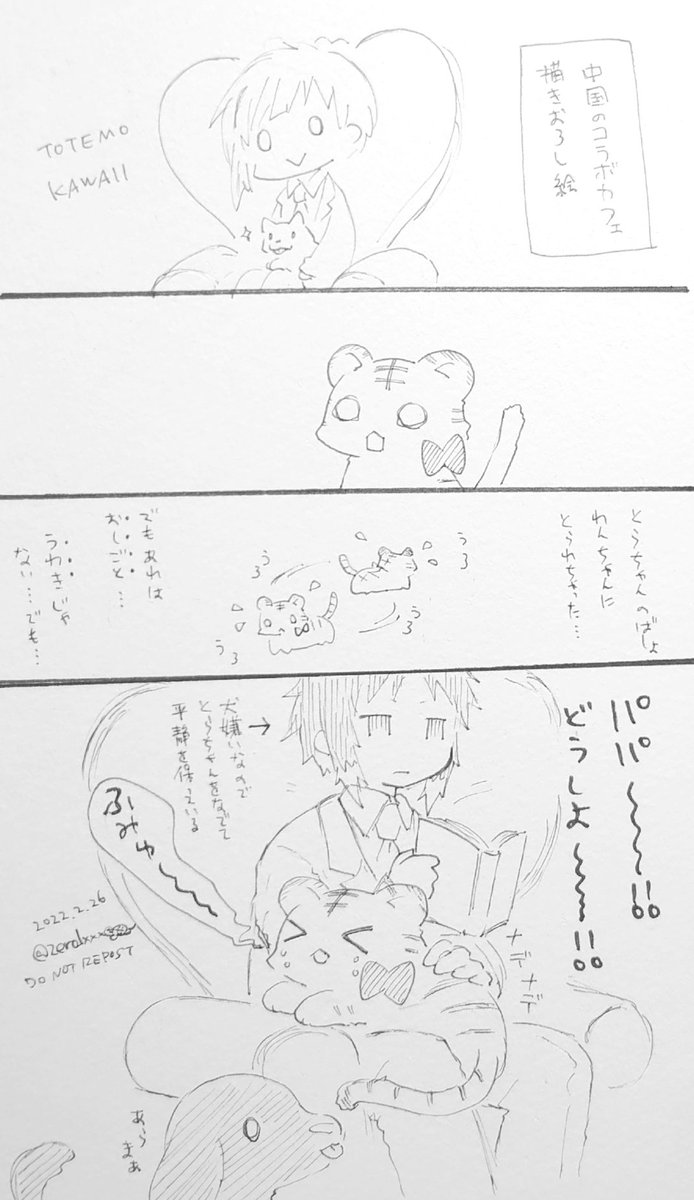 中国のコラボカフェ
描きおろし絵
TOTEMO
KAWAII
とらちゃんのばしょ
わんちゃんに
とられちゃった…
うろ
うろ
うろ
うろ
でもあれは
おしごと…
うわきじゃ
ない…でも…
パパ〜〜〜!!
どうしよ〜〜〜!!
犬嫌いなので
とらちゃんをなでて
平静を保っている
→
ふみゅ〜〜
ナデ
ナデ
2022.2.26
DO NOT REPOST
あら
まぁ